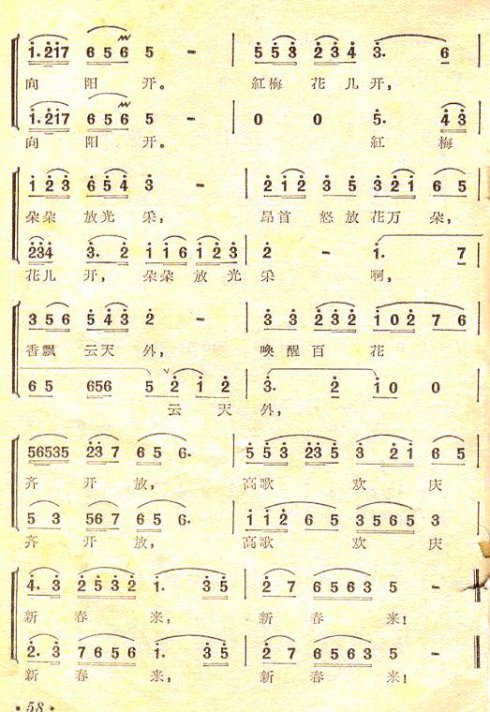 1·217 6 5 6 5 - | 5 5 3 2 3 4 3· 6
向 阳 开。 紅梅 花 儿 开,
1·217 6 5 6 5 - | 0 0 5· 4 3
向 阳 开。 紅 梅
1 2 3 6 5 4 3 - | 2 1 2 3 5 3 2 1 6 5
朵朵 放光 采, 昂首 怒 放 花万 朵,
234 3· 2 1 1 6 1 2 3 | 2 - 1· 7
花儿 开, 朵朵 放 光 采 啊,
3 5 6 5 4 3 2 - | 3 3 2 3 2 1 0 2 7 6
香飘 云天 外, 喚 醒 百 花
6 5 656 5 2 1 2 | 3· 2 1 0 0
云 天 外,
56535 23 7 6 5 6· | 5 5 3 23 5 3 2 1 6 5
齐 开 放, 高歌 欢 庆
5 3 56 7 6 5 6· | 1 1 2 6 5 3 5 6 5 3
齐 开 放, 高歌 欢 庆
4· 3 2 5 3 2 1· 3 5 | 2 7 6 5 6 3 5 -
新 春 来, 新 春 来!
2· 3 7 6 5 6 1· 3 5 | 2 7 6 5 6 3 5 -
新 春 来, 新 春 来!
• 58 •